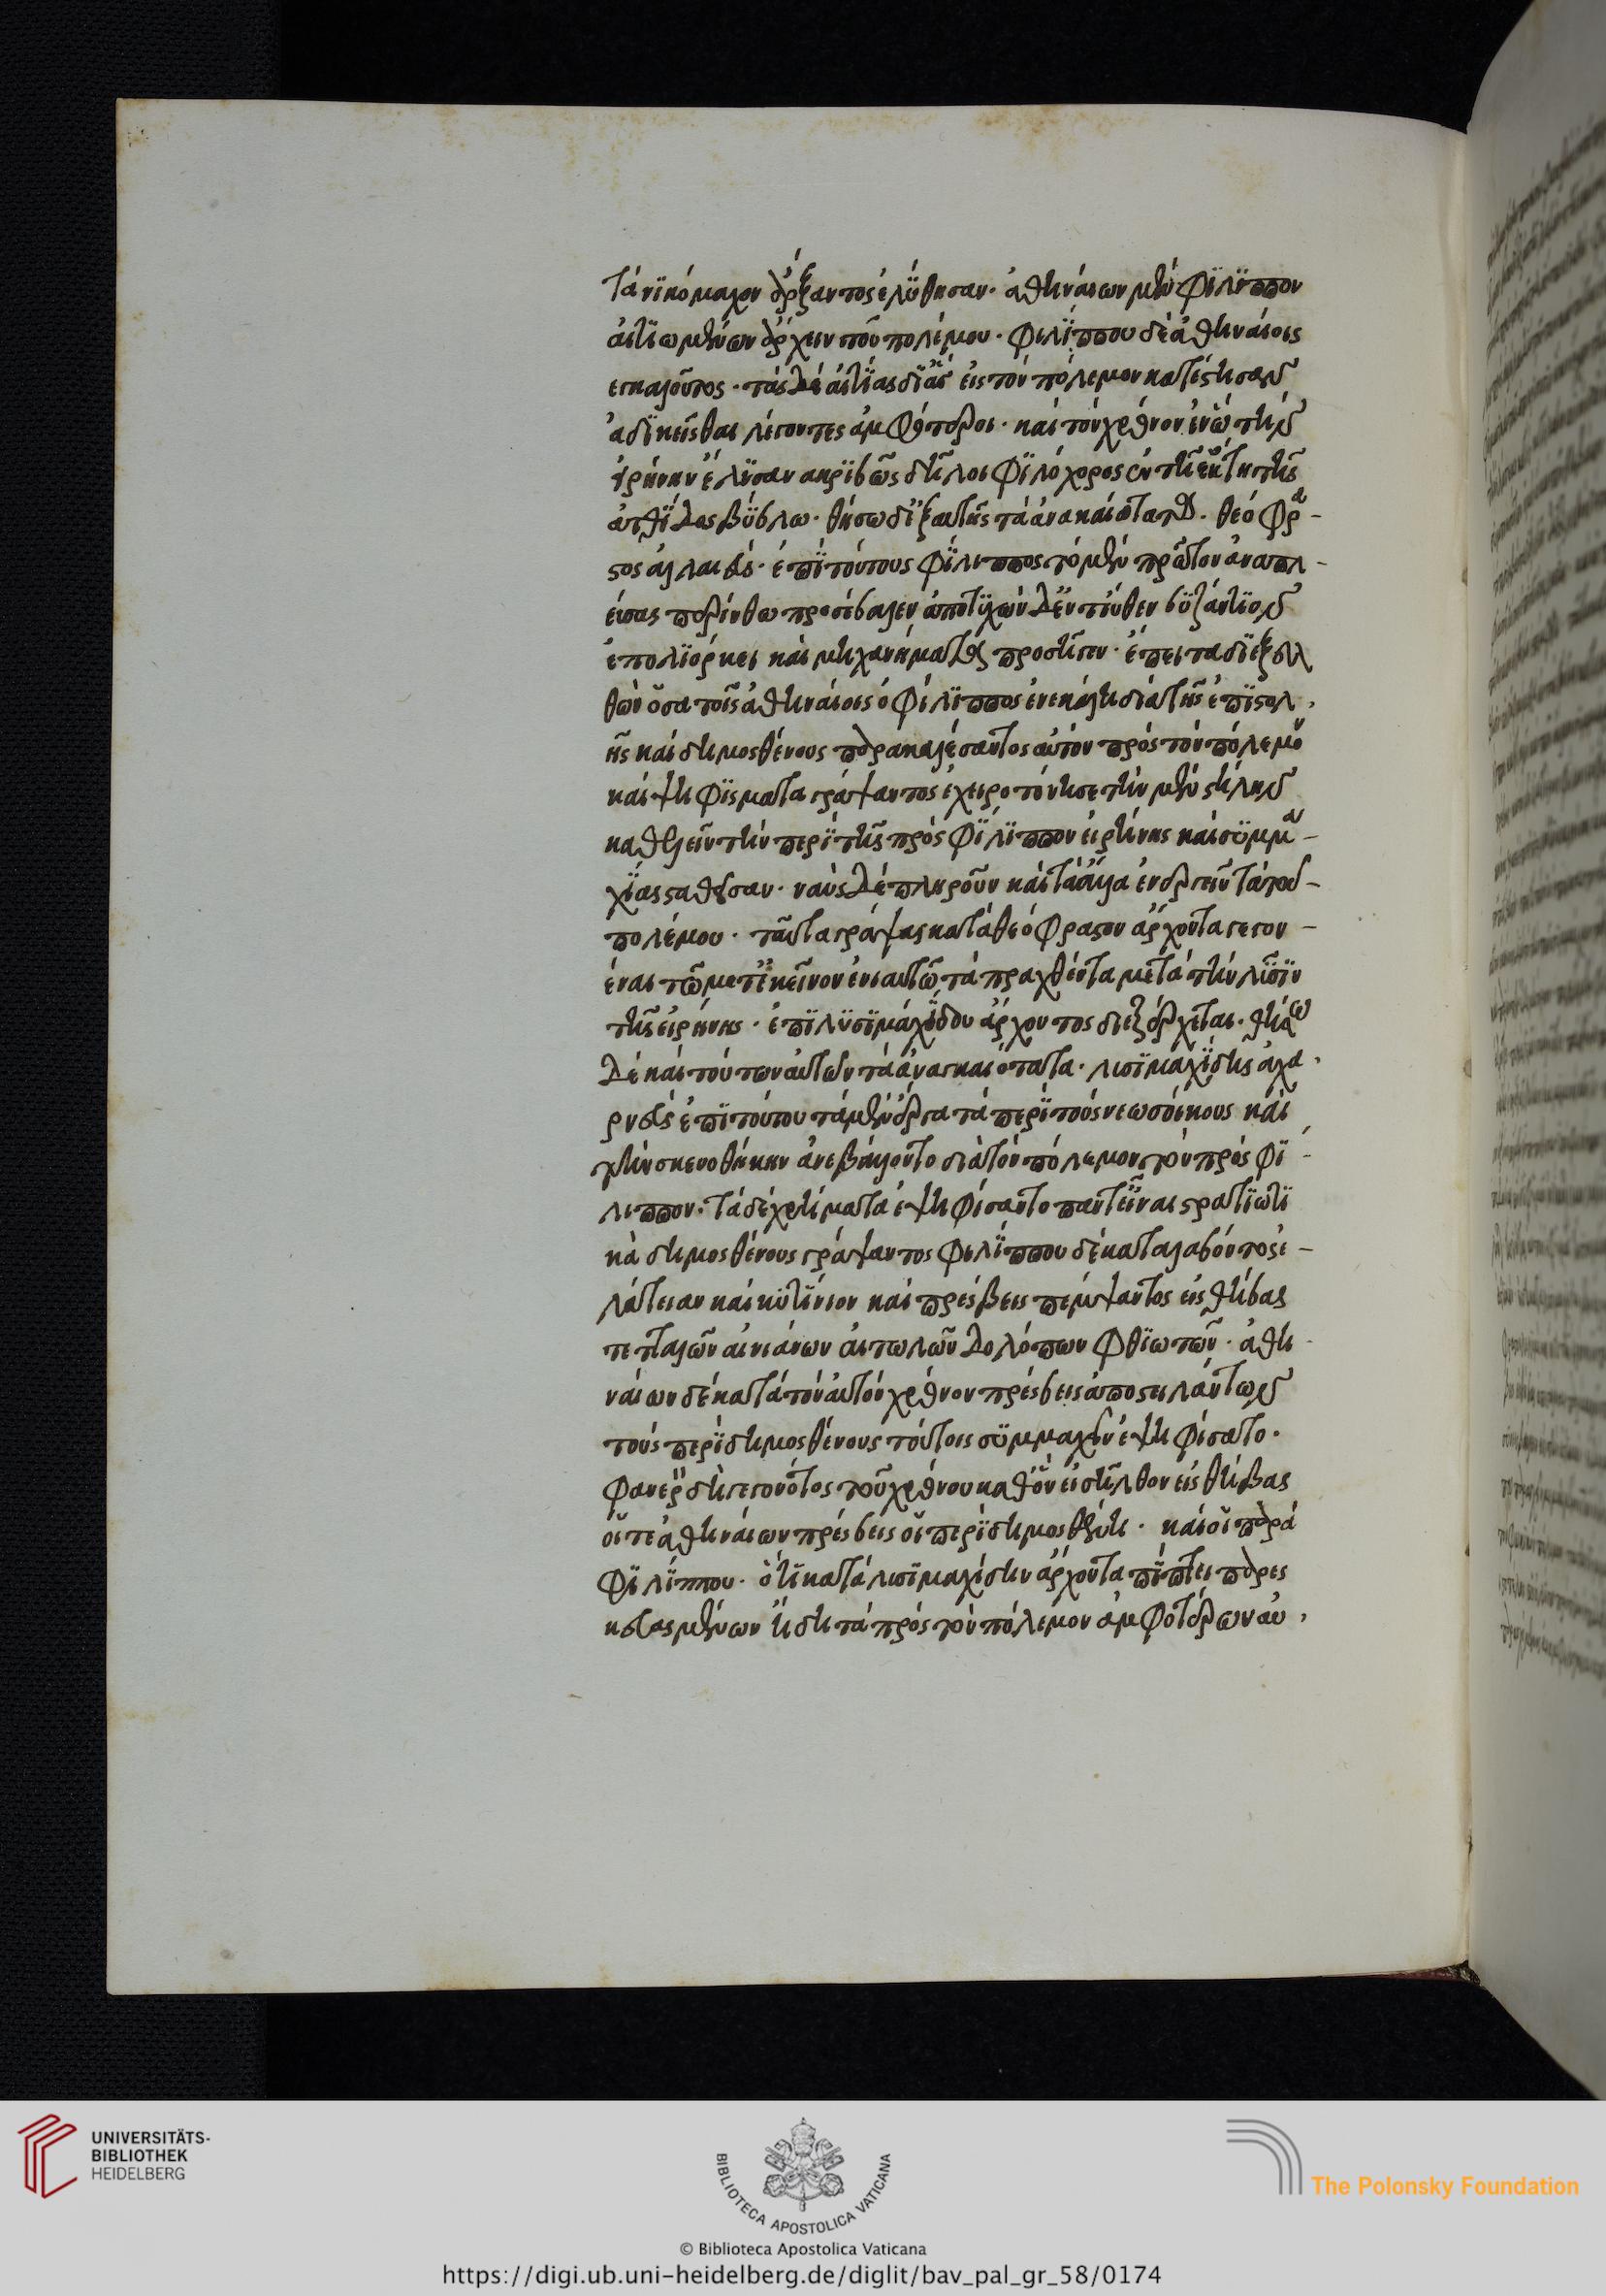 τά νϊκόμαχον ἄρξαντος ἐλύθησαν· ἀθηναίων μὲν φϊλϊππον
ἀιτϊωμένων ἄρχειν τοῦ πολέμου· φιλΐππου δὲ ἀθηναίοις
εγκαλοῦντος· τὰς δὲ ἀιτΐας δϊ ἃς εἰς τὸν πόλεμον κατέστησαν
ἀδϊκεῖσθαι λέγοντες ἀμφότεροι· καὶ τὸν χρόνον ἐν ὧ τὴν
ἰρήνην ἔλϋσαν ακρϊβῶς δῆλοι φϊλόχορος ἐν τῆ ἕκτη τῆς
ἀτθΐδος βΰβλω· θήσω δ' ἐξ αυτῆς τὰ ἀναγκαιότατα. θεόφρα-
στος ἁλαιεύς· ἐπὶ τούτους φΐλιππος τὸ μὲν πρῶτον ἀναπλ-
εύσας περίνθω προσέβαλεν ἀποτϋχὼν δ' ἐντεῦθεν βϋζάντϊον
ἐπολϊόρκει καὶ μηχανήματα προσῆγεν· ἔπειτα διεξελ
θὼν ὅσα τοῖς ἀθηναίοις ὁ φίλϊππος ἐνεκάλει διὰ τῆς ἐπϊστολ
ῆς καὶ δημοσθένους παρακαλέσαντος αὐτὸν πρὸς τὸν πόλεμον
καὶ ψηφΐσματα γράψαντος ἐχειροτόνησε τὴν μὲν στήλην
καθελεῖν τὴν περὶ τῆς πρὸς φΐλϊππον εἰρήνης καὶ σϋμμα-
χΐας σταθεῖσαν· ναῦς δὲ πληροῦν καὶ τὰ ἄλλα ἐνεργεῖν τὰ τοῦ-
πολέμου· ταῦτα γράψας κατὰ θεόφραστον ἄρχοντα γεγον-
έναι τῶ μετ' ἐκεῖνον ἐνιαυτῶ τὰ πραχθέντα μετὰ τὴν λῦσϊν
τῆς εἰρήνης· ἐπὶ λϋσϊμαχΐδου ἄρχοντος διεξέρχεται· θήσω
δὲ καὶ τούτων αὐτῶν τὰ ἀναγκαιότατα· λισϊμαχΐδης ἀχα
ρνεὺς ἐπὶ τούτου τὰ μὲν ἔργα τὰ περὶ τοὺς νεωσοίκους καὶ
τὴν σκευοθήκην ἀνεβάλοντο διὰ τὸν πόλεμον τὸν πρὸς φΐ
λιππον· τὰ δὲ χρήματα ἐψηφίσαντο πάντ' εἶναι στρατϊωτϊ
κὰ δημοσθένους γράψαντος φιλΐππου δὲ καταλαβόντος ἐ-
λάτειαν καὶ κϋτΐνιον καὶ πρέσβεις πέμψαντος εἰς θήβας
τετταλῶν αἰνιάνων ἀιτωλῶν δολόπων φθϊωτῶν· ἀθη
ναίων δὲ κατὰ τὸν αὐτὸν χρόνον πρέσβεις ἀποστειλάντων
τοὺς περὶ δημοσθένους τούτοις σϋμμαχεῖν ἐψηφίσατο·
φανεροῦ δὴ γεγονότος τοῦ χρόνου καθ' ὃν εἰσῆλθον εἰς θήβας
οἵ τε ἀθηναίων πρέσβεις οἱ περὶ δημοσθένη· καὶ οἱ παρὰ
φϊλΐππου· ὅτι κατὰ λισϊμαχίδην ἄρχοντα πΐπτει παρεσ
κευασμένων ἤδη τὰ πρὸς τὸν πόλεμον ἀμφοτέρων αὐ
UNIVERSITÄTS-
BIBLIOTHEK
HEIDELBERG
BIBLIOTECA APOSTOLICA VATICANA
The Polonsky Foundation
© Biblioteca Apostolica Vaticana
https://digi.ub.uni-heidelberg.de/diglit/bav_pal_gr_58/0174